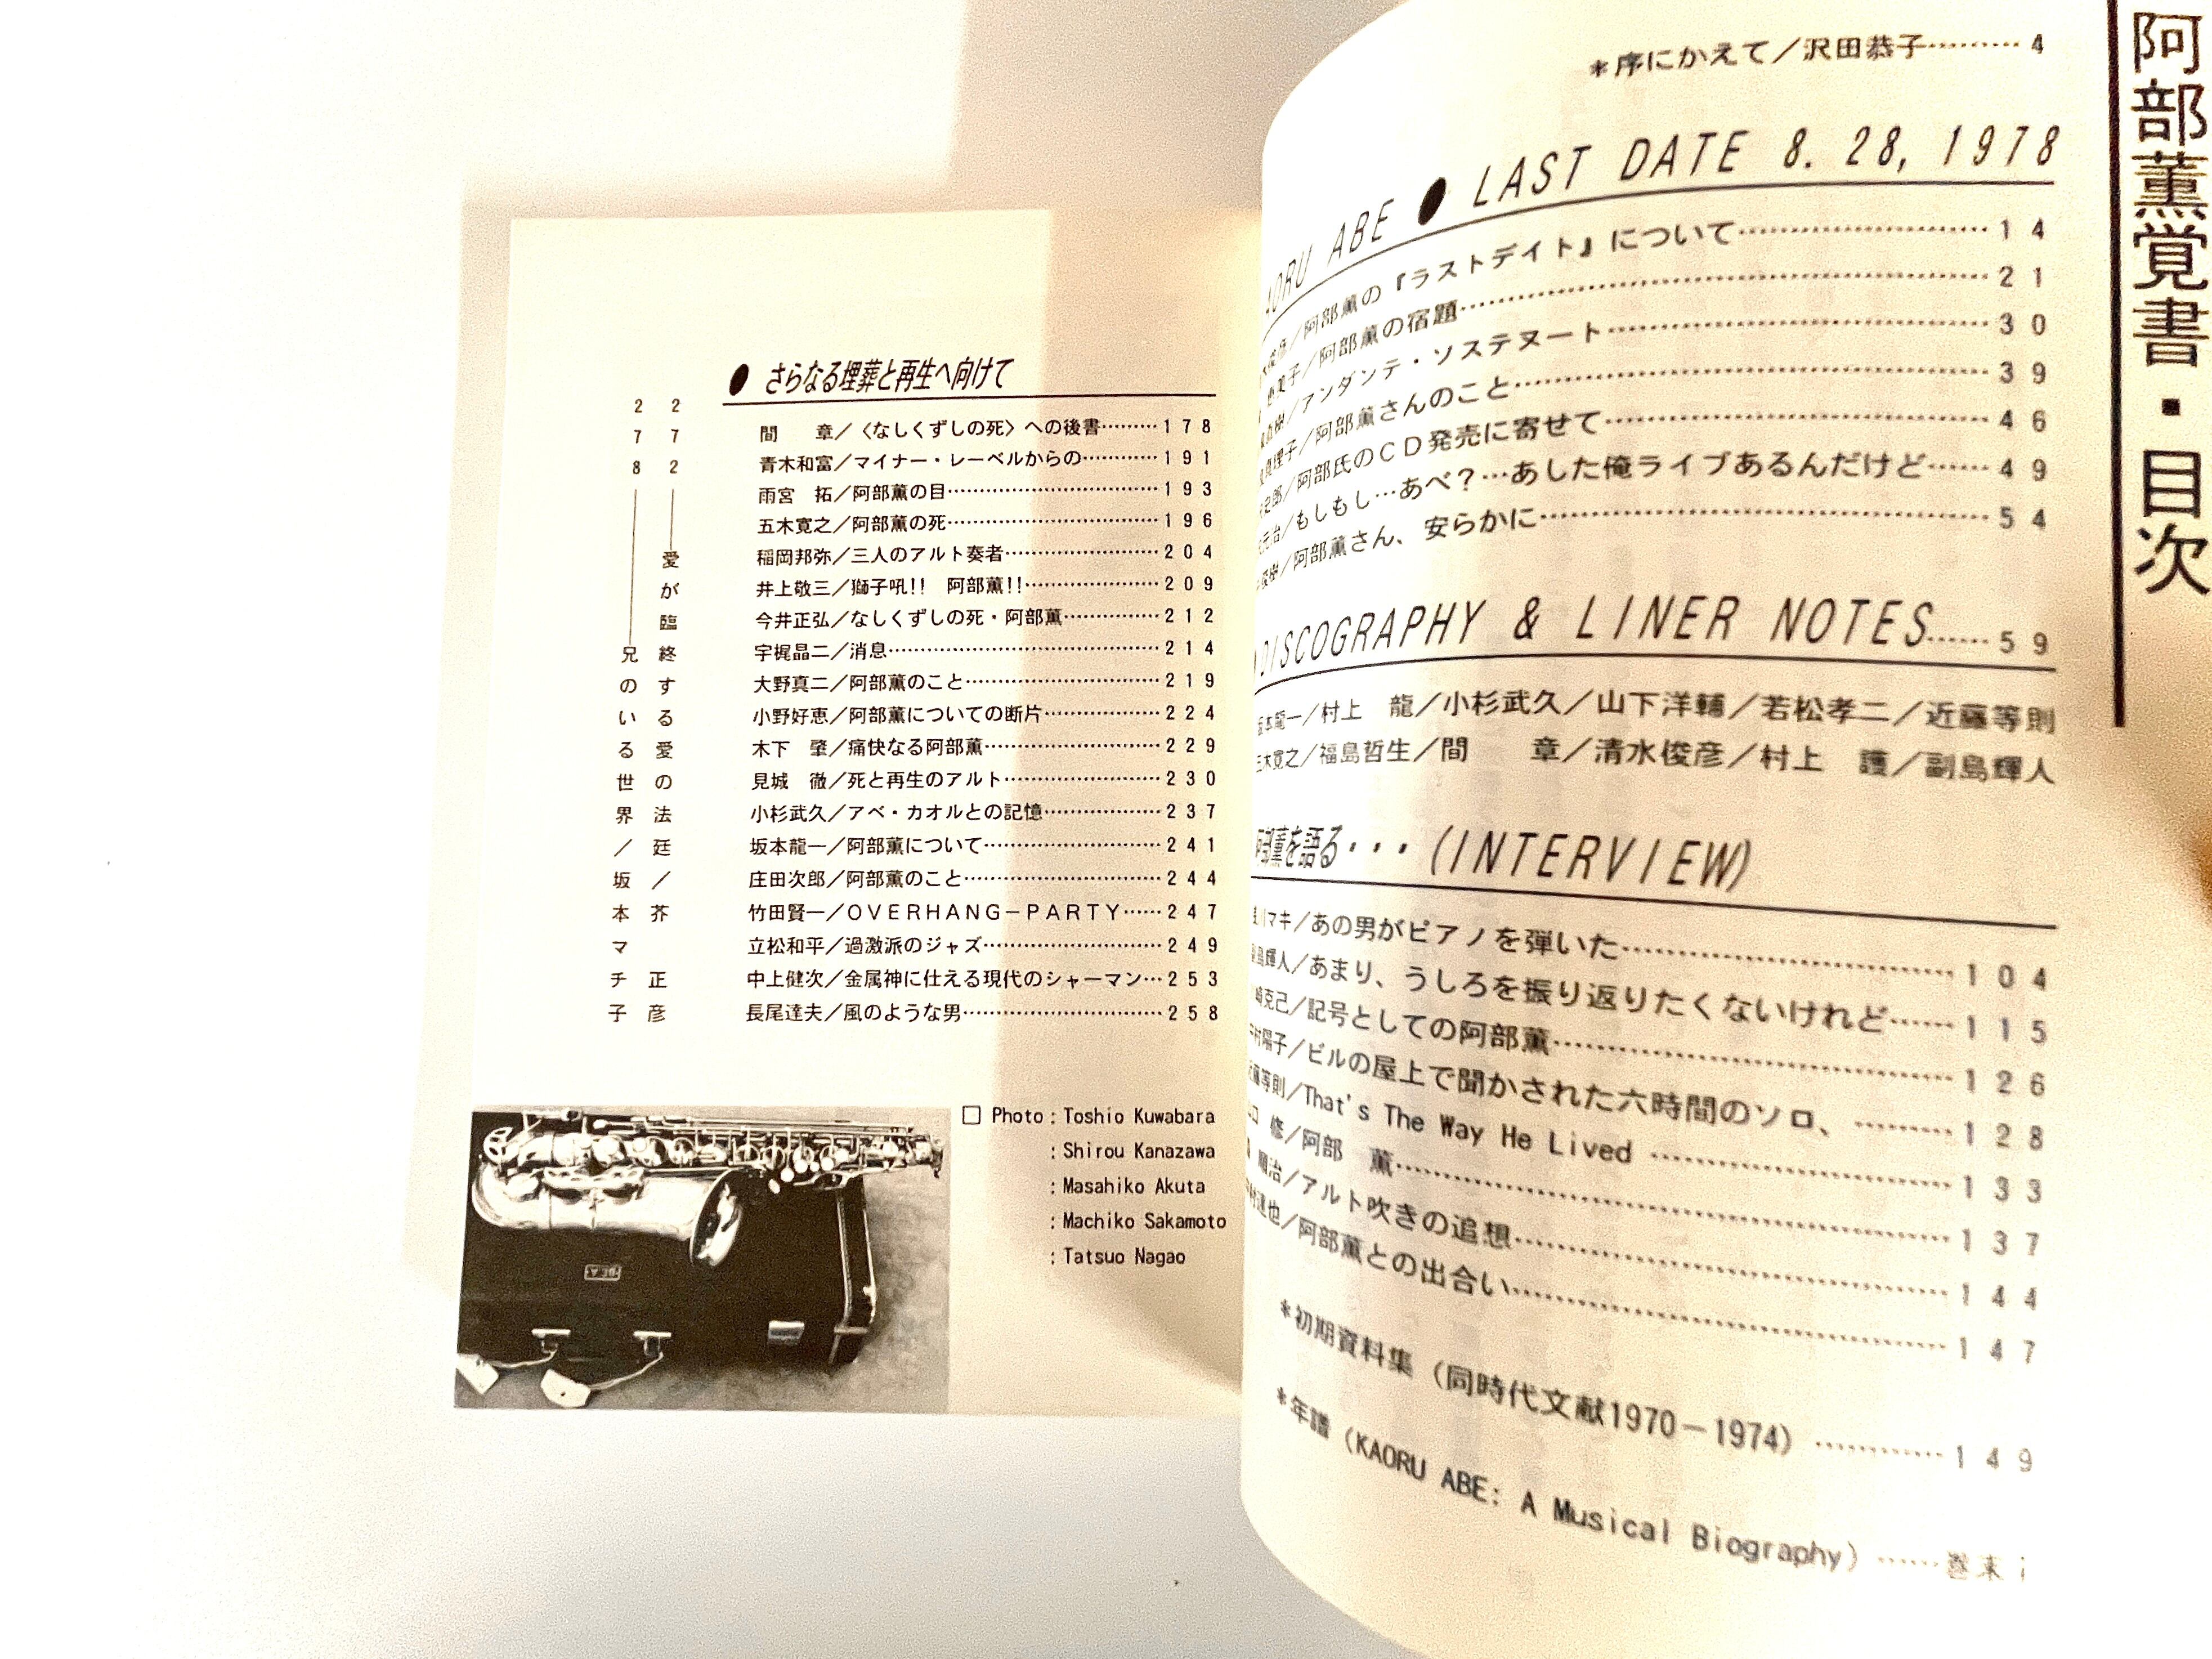 阿部薫覚書・目次
＊序にかえて／沢田恭子………4
ABE ● LAST DATE 8. 28, 1978
／阿部薫の『ラストデイト』について………14
／阿部薫の宿題………21
／アンダンテ・ソステヌート………30
／阿部薫さんのこと………39
／阿部氏のＣＤ発売に寄せて………46
／もしもし…あべ？…あした俺ライブあるんだけど……49
／阿部薫さん、安らかに………54
DISCOGRAPHY & LINER NOTES……59
坂本龍一／村上　龍／小杉武久／山下洋輔／若松孝二／近藤等則
五木寛之／福島哲生／間　　章／清水俊彦／村上　護／副島輝人
阿部薫を語る・・・(INTERVIEW)
マキ／あの男がピアノを弾いた………104
副島輝人／あまり、うしろを振り返りたくないけれど……115
克己／記号としての阿部薫………126
陽子／ビルの屋上で聞かされた六時間のソロ、………128
近藤等則／That's The Way He Lived………133
修／阿部　薫………137
順治／アルト吹きの追想………144
達也／阿部薫との出合い………147
＊初期資料集（同時代文献1970－1974）…………149
＊年譜（KAORU ABE: A Musical Biography）……巻末 i
● さらなる埋葬と再生へ向けて
間　　章／〈なしくずしの死〉への後書………178
青木和富／マイナー・レーベルからの…………191
雨宮　拓／阿部薫の目………193
五木寛之／阿部薫の死………196
稲岡邦弥／三人のアルト奏者………204
井上敬三／獅子吼!!　阿部薫!!………209
今井正弘／なしくずしの死・阿部薫…………212
宇梶晶二／消息………214
大野真二／阿部薫のこと………219
小野好恵／阿部薫についての断片…………224
木下　肇／痛快なる阿部薫………229
見城　徹／死と再生のアルト………230
小杉武久／アベ・カオルとの記憶…………237
坂本龍一／阿部薫について………241
庄田次郎／阿部薫のこと………244
竹田賢一／ＯＶＥＲＨＡＮＧ－ＰＡＲＴＹ……247
立松和平／過激派のジャズ………249
中上健次／金属神に仕える現代のシャーマン…253
長尾達夫／風のような男………258
272――愛が臨終する愛の法廷／芥　正彦
278――――兄のいる世界／坂本マチ子
□ Photo : Toshio Kuwabara
: Shirou Kanazawa
: Masahiko Akuta
: Machiko Sakamoto
: Tatsuo Nagao